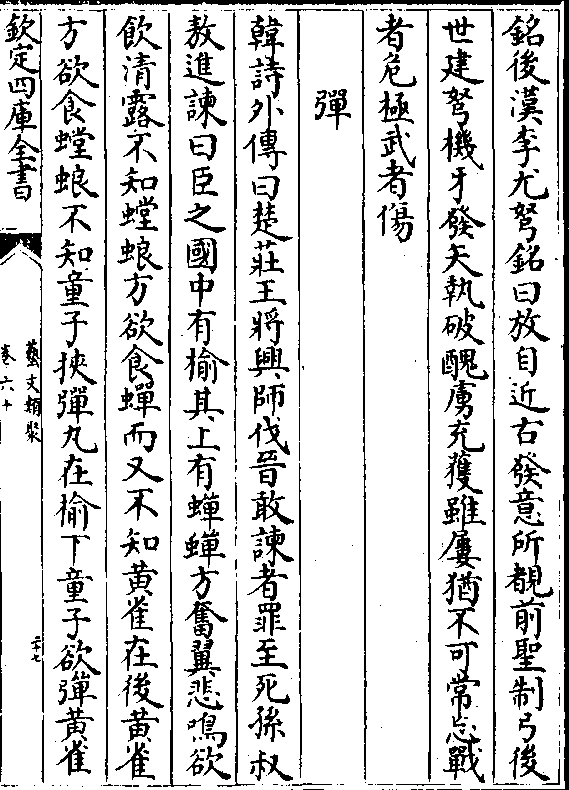 銘後漢李尤弩銘曰放自近古發意所覩前聖制弓後
世建弩機牙發矢執破醜虜充獲雖屢猶不可常忘戰
者危極武者傷
彈
韓詩外傳曰楚莊王將興師伐晉敢諫者罪至死孫叔
敖進諫曰臣之國中有榆其上有蟬蟬方奮翼悲鳴欲
飲清露不知螳蜋方欲食蟬而又不知黄雀在後黄雀
方欲食螳蜋不知童子挾彈丸在榆下童子欲彈黄雀
欽定四庫全書
藝文類聚
卷六十
二十七